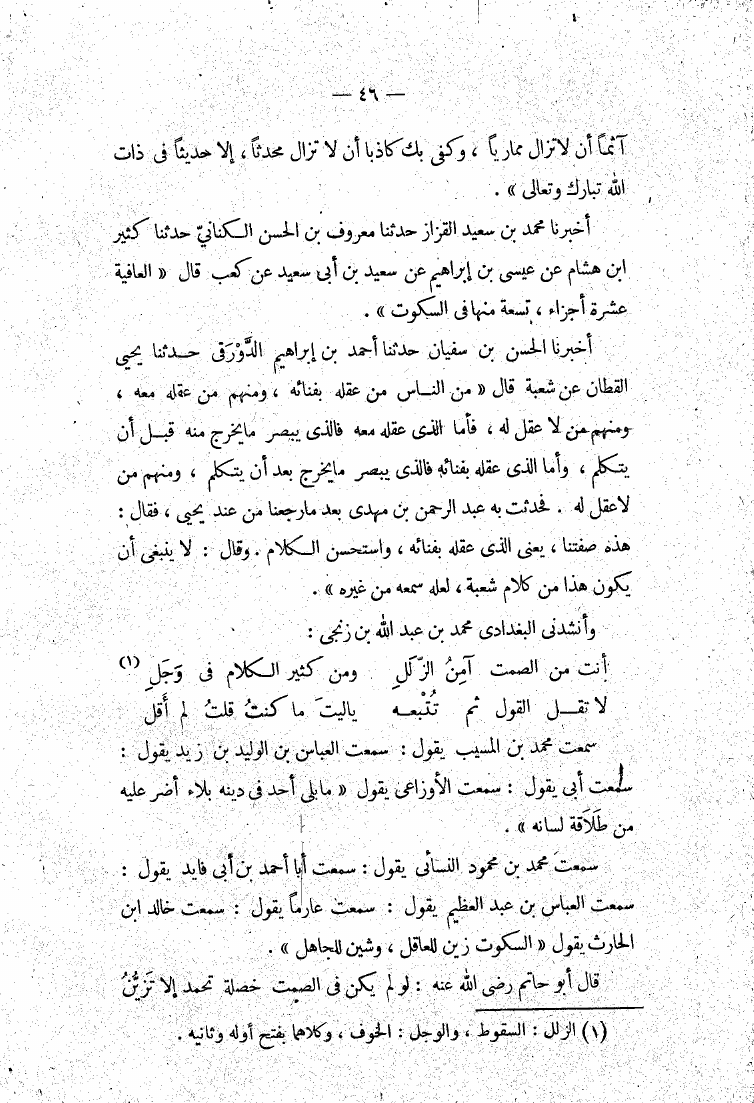 — ٤٦ —
آثماً أن لا تزال ممارياً ، وكفى بك كاذبا أن لا تزال محدثاً ، إلا حديثاً فى ذات
الله تبارك وتعالى » .
أخبرنا محمد بن سعيد القزاز حدثنا معروف بن الحسن الكنانىّ حدثنا كثير
ابن هشام عن عيسى بن إبراهيم عن سعيد بن أبى سعيد عن كعب قال « العافية
عشرة أجزاء ، تسعة منها فى السكوت » .
أخبرنا الحسن بن سفيان حدثنا أحمد بن إبراهيم الدَّوْرَقى حدثنا يحيى
القطان عن شعبة قال « من الناس من عقله بفنائه ، ومنهم من عقله معه ،
ومنهم من لا عقل له ، فأما الذى عقله معه فالذى يبصر ما يخرج منه قبل أن
يتكلم ، وأما الذى عقله بفنائه فالذى يبصر ما يخرج بعد أن يتكلم ، ومنهم من
لا عقل له . فحدثت به عبد الرحمن بن مهدى بعد ما رجعنا من عند يحيى ، فقال :
هذه صفتنا ، يعنى الذى عقله بفنائه ، واستحسن الكلام . وقال : لا ينبغى أن
يكون هذا من كلام شعبة ، لعله سمعه من غيره » .
وأنشدنى البغدادى محمد بن عبد الله بن زنجى :
أنت من الصمت آمِنُ الزّللِ ومن كثير الكلام فى وَجَلِ (١)
لا تقل القول ثم تُتْبعه ياليتَ ما كنتُ قلتُ لم أَقل
سمعت محمد بن المسيب يقول : سمعت العباس بن الوليد بن زيد يقول :
سمعت أبى يقول : سمعت الأوزاعى يقول « ما بلى أحد فى دينه بلاء أضر عليه
من طَلَاقة لسانه » .
سمعت محمد بن محمود النسائى يقول : سمعت أبا أحمد بن أبى فايد يقول :
سمعت العباس بن عبد العظيم يقول : سمعت عارماً يقول : سمعت خالد ابن
الحارث يقول « السكوت زين للعاقل ، وشين للجاهل » .
قال أبو حاتم رضى الله عنه : لو لم يكن فى الصمت خصلة تحمد إلا تَزَيُّنُ
(١) الزلل : السقوط ، والوجل : الخوف ، وكلاهما بفتح أوله وثانيه .